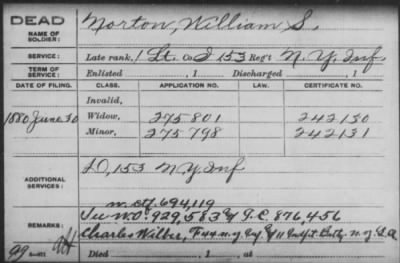 DEAD
NAME OF SOLDIER: Norton, William S.
SERVICE: Late rank, 1 Lt. Co. D 153 Reg't N.Y. Inf.
TERM OF SERVICE: Enlisted , 1 Discharged , 1
DATE OF FILING. CLASS. APPLICATION NO. LAW. CERTIFICATE NO.
Invalid,
1880 June 30 Widow, 275801 242130
Minor, 275798 242131
ADDITIONAL SERVICES: D, 153 N.Y. Inf
m. ctf. 694,119
REMARKS: W.O. 929,583 & J.C. 876,456
Charles Wilber, F 44 N.Y. Inf. & 11 Indpt. Batty. N.Y. L.A.
Died , 1 at